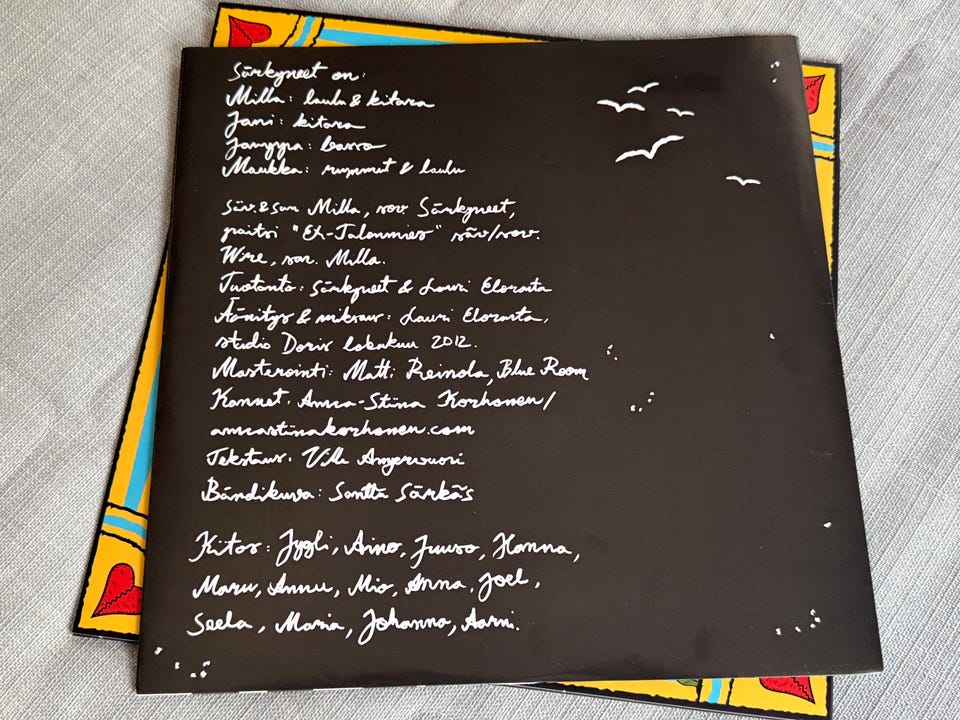 Särkyneet on:
Milla: laulu & kitara
Jani: kitara
Janyyra: basso
Maukka: rummut & laulu
säv. & san Milla, sov. Särkyneet,
paitsi "Ex-Talonmies" säv/sov.
Wire, san. Milla.
Tuotanto: Särkyneet & Lauri Eloranta
Äänitys & miksaus: Lauri Eloranta,
studio Doris lokakuu 2012.
Masterointi: Matti Reinola, Blue Room
Kannet: Anna-Stina Korhonen/
annastinakorhonen.com
Tekstaus: Ville Angervuori
Bändikuva: Santtu Särkäs
Kiitos: Jygli, Aino, Juuso, Hanna,
Maru, Annu, Mio, Anna, Joel,
Seela, Maria, Johanna, Aarni.